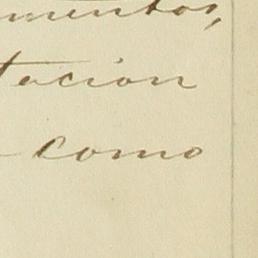 umentos,
tacion
como